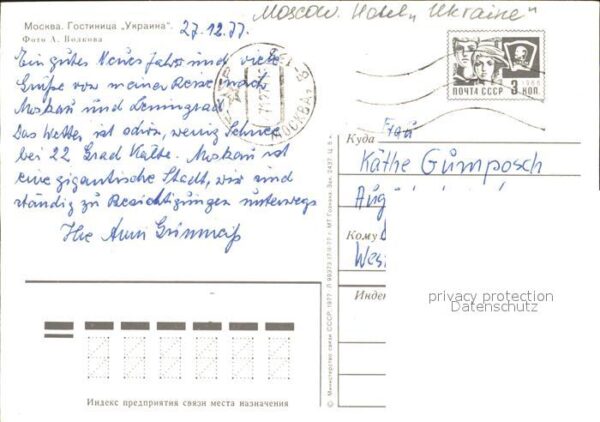 Москва. Гостиница „Украина".
Фото А. Волкова
27.12.77.
Moscow. Hotel „Ukraine"
Ein gutes Neues Jahr und viele
Grüße von meiner Reise nach
Moskau und Leningrad.
Das Wetter ist schön, wenig Schnee
bei 22 Grad Kälte. Moskau ist
eine gigantische Stadt, wir sind
ständig zu Besichtigungen unterwegs
Ihre Anni
МОСКВА
ПОЧТА СССР 3 КОП.
Куда
Frau
Käthe Gumposch
Aug
Кому
Wes
Индекс
privacy protection
Datenschutz
© Министерство связи СССР, 1977
Индекс предприятия связи места назначения